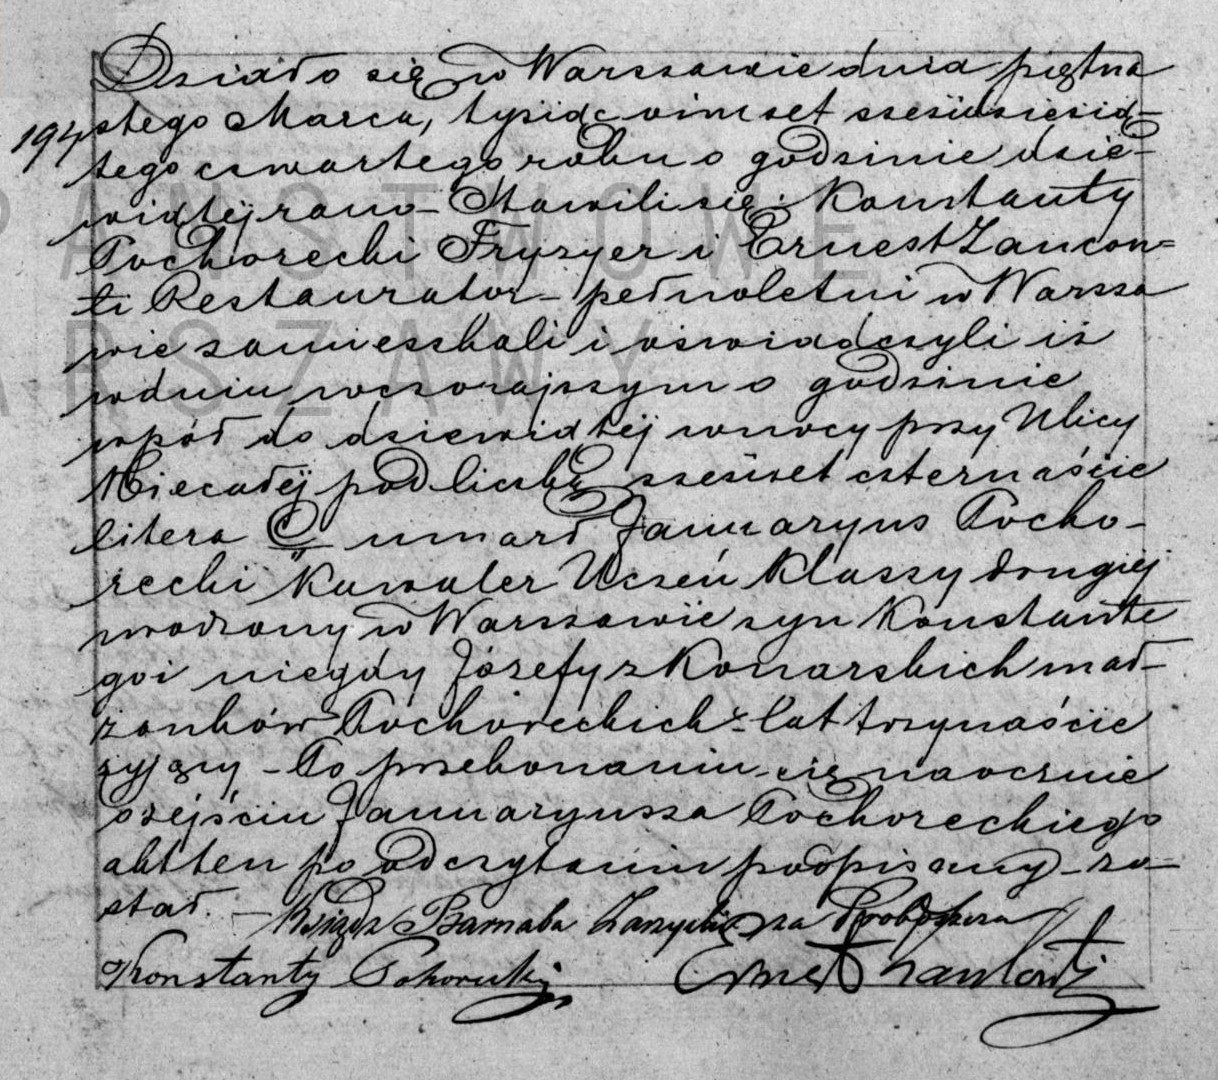 Działo się w Warszawie dnia piętna
194
stego Marca, tysiąc ośmset sześćdziesią-
tego czwartego roku o godzinie dzie-
wiątéj rano – Stawili się: Konstanty
Pochorecki Fryzyer i Ernest Zancon=
ti Restaurator – pełnoletni w Warsza
wie zamieszkali i oświadczyli iż
w dniu wczorajszym o godzinie
wpół do dziewiątéj w nocy przy Ulicy
Niecałéj pod liczbą sześćset czternaście
litera C umarł Januaryus Pocho-
recki Kawaler Uczeń Klassy drugiéj
urodzony w Warszawie syn Konstante
go i niegdy Józefy z Konarskich mał-
żonków Pochoreckich – lat trzynaście
żyjący – Po przekonaniu się naocznie
o zejściu Januaryusza Pochoreckiego
akt ten po odczytaniu podpisany – zo-
stał. – Ksiądz Barnaba za Proboszcza
Konstanty Pohorecki Ernest Zanconti
PAŃSTWOWE
WARSZAWY